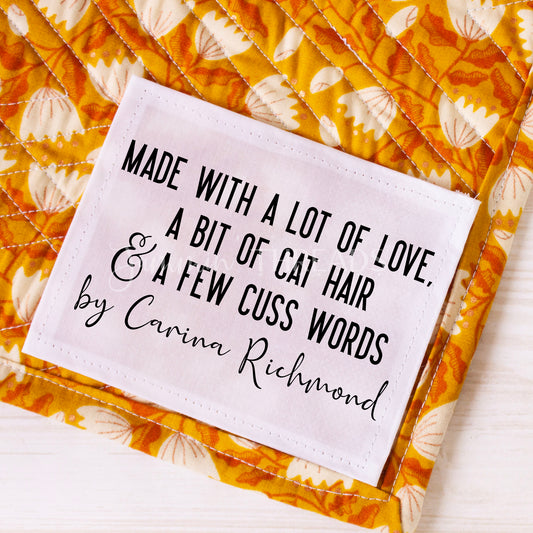 MADE WITH A LOT OF LOVE,
A BIT OF CAT HAIR
& A FEW CUSS WORDS
by Carina Richmond
THREADS